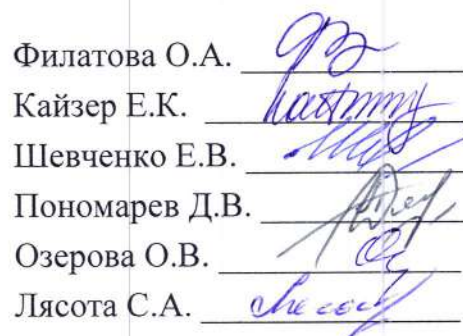 Филатова О.А.
Кайзер Е.К.
Шевченко Е.В.
Пономарев Д.В.
Озерова О.В.
Лясота С.А.